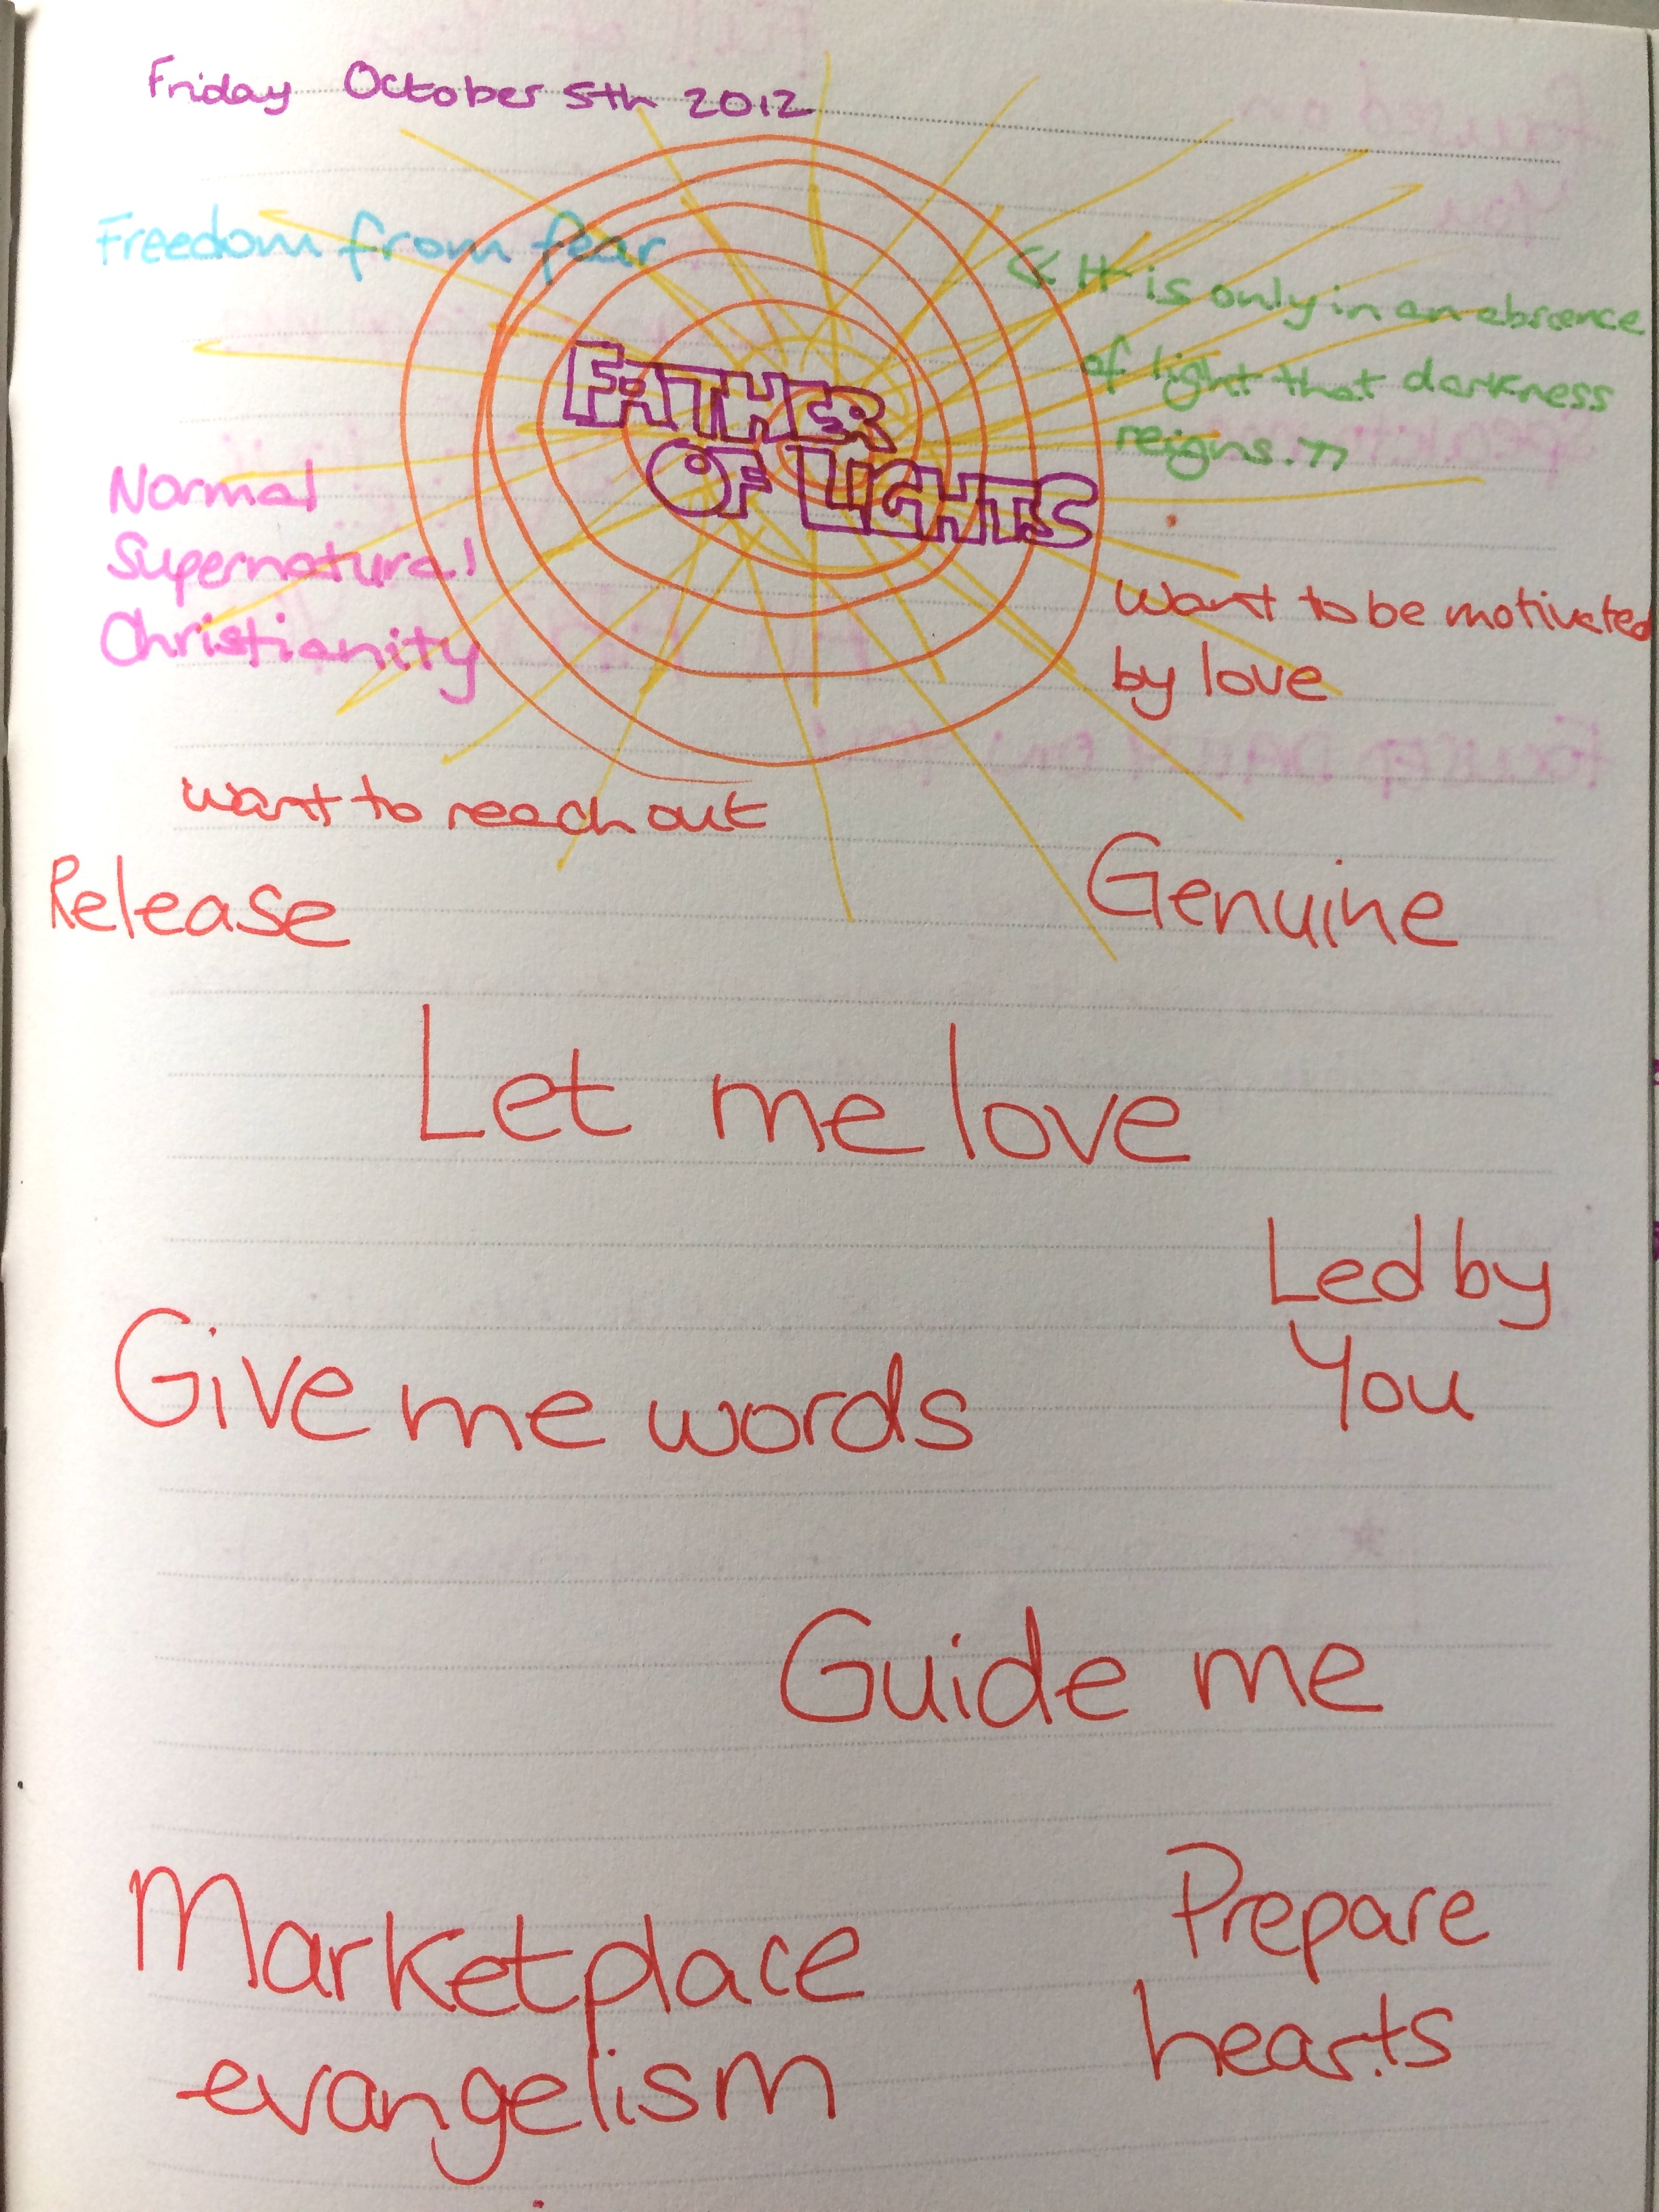 Friday October 5th 2012
Freedom from fear
« It is only in an absence
of light that darkness
reigins.»
FATHER
OF LIGHTS
Normal
Supernatural
Christianity
Want to be motivated
by love
want to reach out
Release
Genuine
Let me love
Led by
You
Give me words
Guide me
Marketplace
evangelism
Prepare
hearts